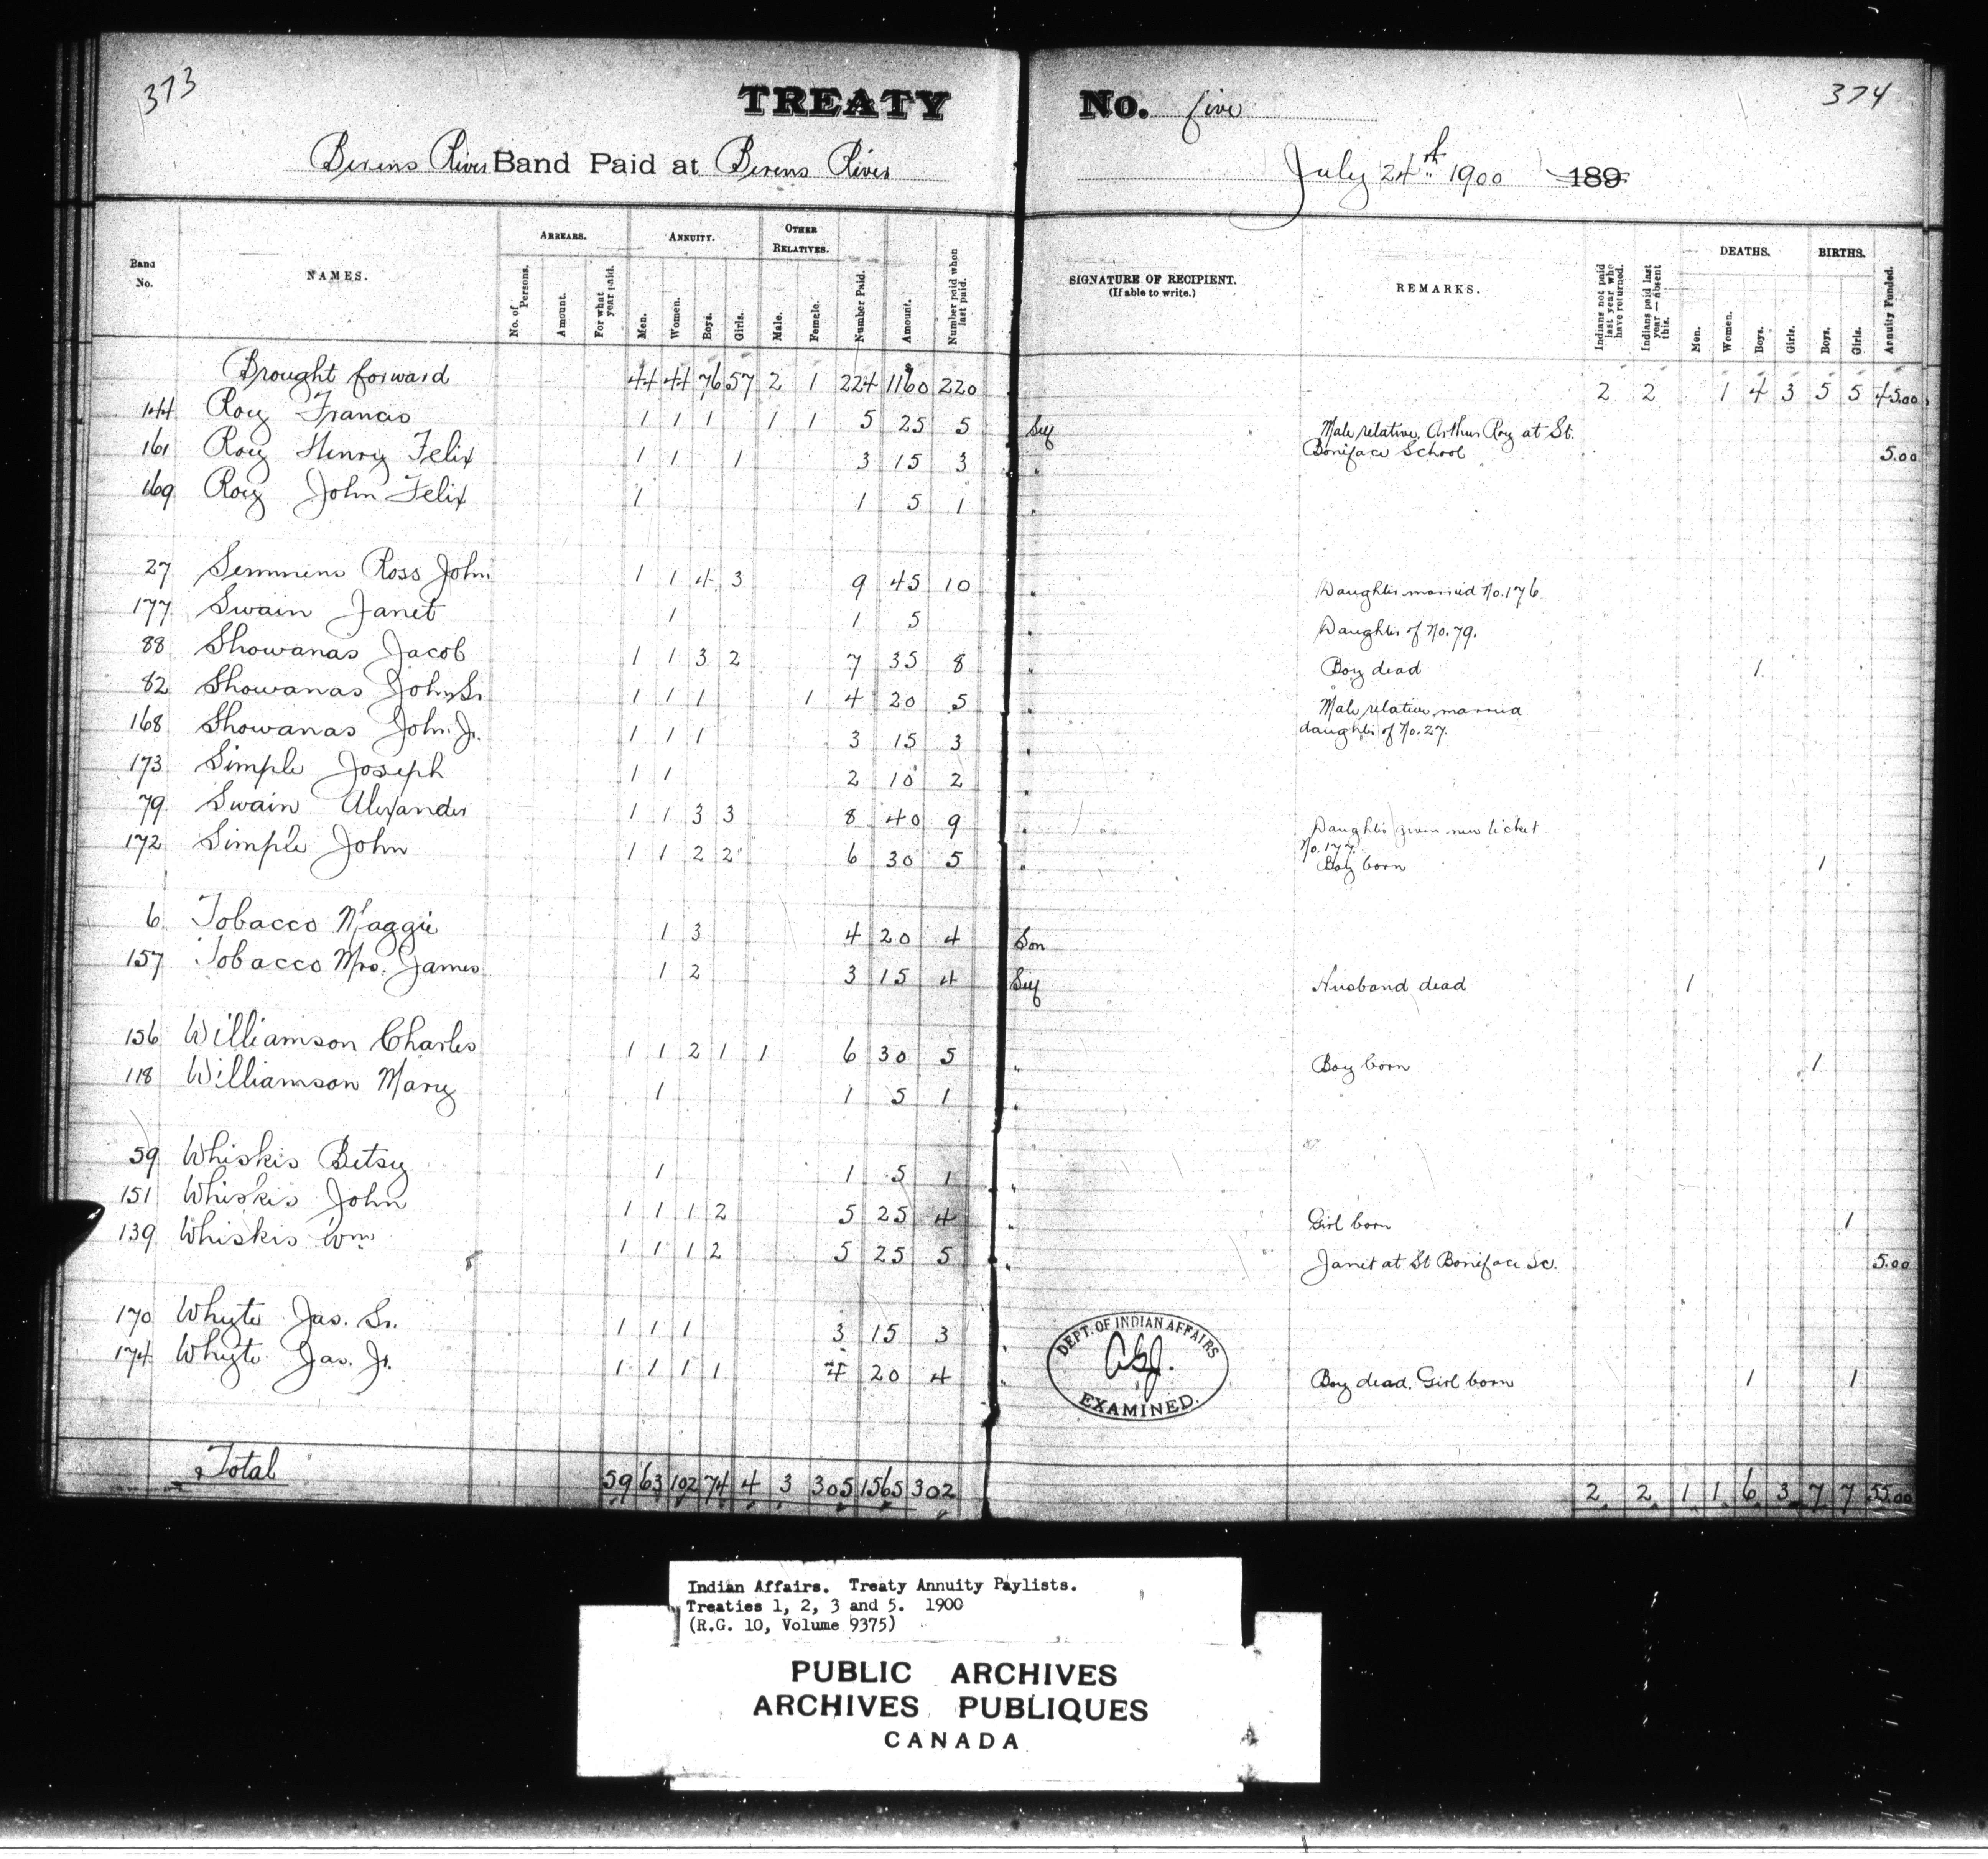 373
TREATY No. five
374
Berens River Band Paid at Berens River
July 24th 1900 189
Band No. NAMES. ARREARS. No. of Persons. Amount. For what year paid. ANNUITY. Men. Women. Boys. Girls. OTHER RELATIVES. Male. Female. Number Paid. Amount. Number paid when last paid. SIGNATURE OF RECIPIENT. (If able to write.) REMARKS. Indians not paid last year who have returned. Indians paid last year — absent this. DEATHS. Men. Women. Boys. Girls. BIRTHS. Boys. Girls. Annuity Funded.
Brought forward 44 44 76 57 2 1 224 1160 220 2 2 1 4 3 5 5 45.00
144 Roy Francis 1 1 1 1 1 5 25 5 Self Male relative, Arthur Roy at St.
161 Roy Henry Felix 1 1 1 3 15 3 " Boniface School 5.00
169 Roy John Felix 1 1 5 1 "
27 Semmens Ross John 1 1 4 3 9 45 10 " Daughter married No. 176
177 Swain Janet 1 1 5 " Daughter of No. 79.
88 Showanas Jacob 1 1 3 2 7 35 8 " Boy dead 1
82 Showanas John Sr. 1 1 1 1 4 20 5 " Male relative married
168 Showanas John Jr. 1 1 1 3 15 3 " daughter of No. 27.
173 Simple Joseph 1 1 2 10 2 "
79 Swain Alexander 1 1 3 3 8 40 9 " Daughter given new ticket
No. 177.
172 Simple John 1 1 2 2 6 30 5 " Boy born 1
6 Tobacco Maggie 1 3 4 20 4 Son
157 Tobacco Mrs. James 1 2 3 15 4 Self Husband dead 1
156 Williamson Charles 1 1 2 1 1 6 30 5 " Boy born 1
118 Williamson Mary 1 1 5 1 "
59 Whiskis Betsy 1 1 5 1 "
151 Whiskis John 1 1 1 2 5 25 4 " Girl born 1
139 Whiskis Wm 1 1 1 2 5 25 5 " Janet at St Boniface Sc. 5.00
170 Whyte Jas. Sr. 1 1 1 3 15 3 "
174 Whyte Jas. Jr. 1 1 1 1 4 20 4 " Boy dead. Girl born 1 1
DEPT. OF INDIAN AFFAIRS
EXAMINED.
Total 59 63 102 74 4 3 305 1565 302 2 2 1 1 6 3 7 7 55.00
Indian Affairs. Treaty Annuity Paylists.
Treaties 1, 2, 3 and 5. 1900
(R.G. 10, Volume 9375)
PUBLIC ARCHIVES
ARCHIVES PUBLIQUES
CANADA